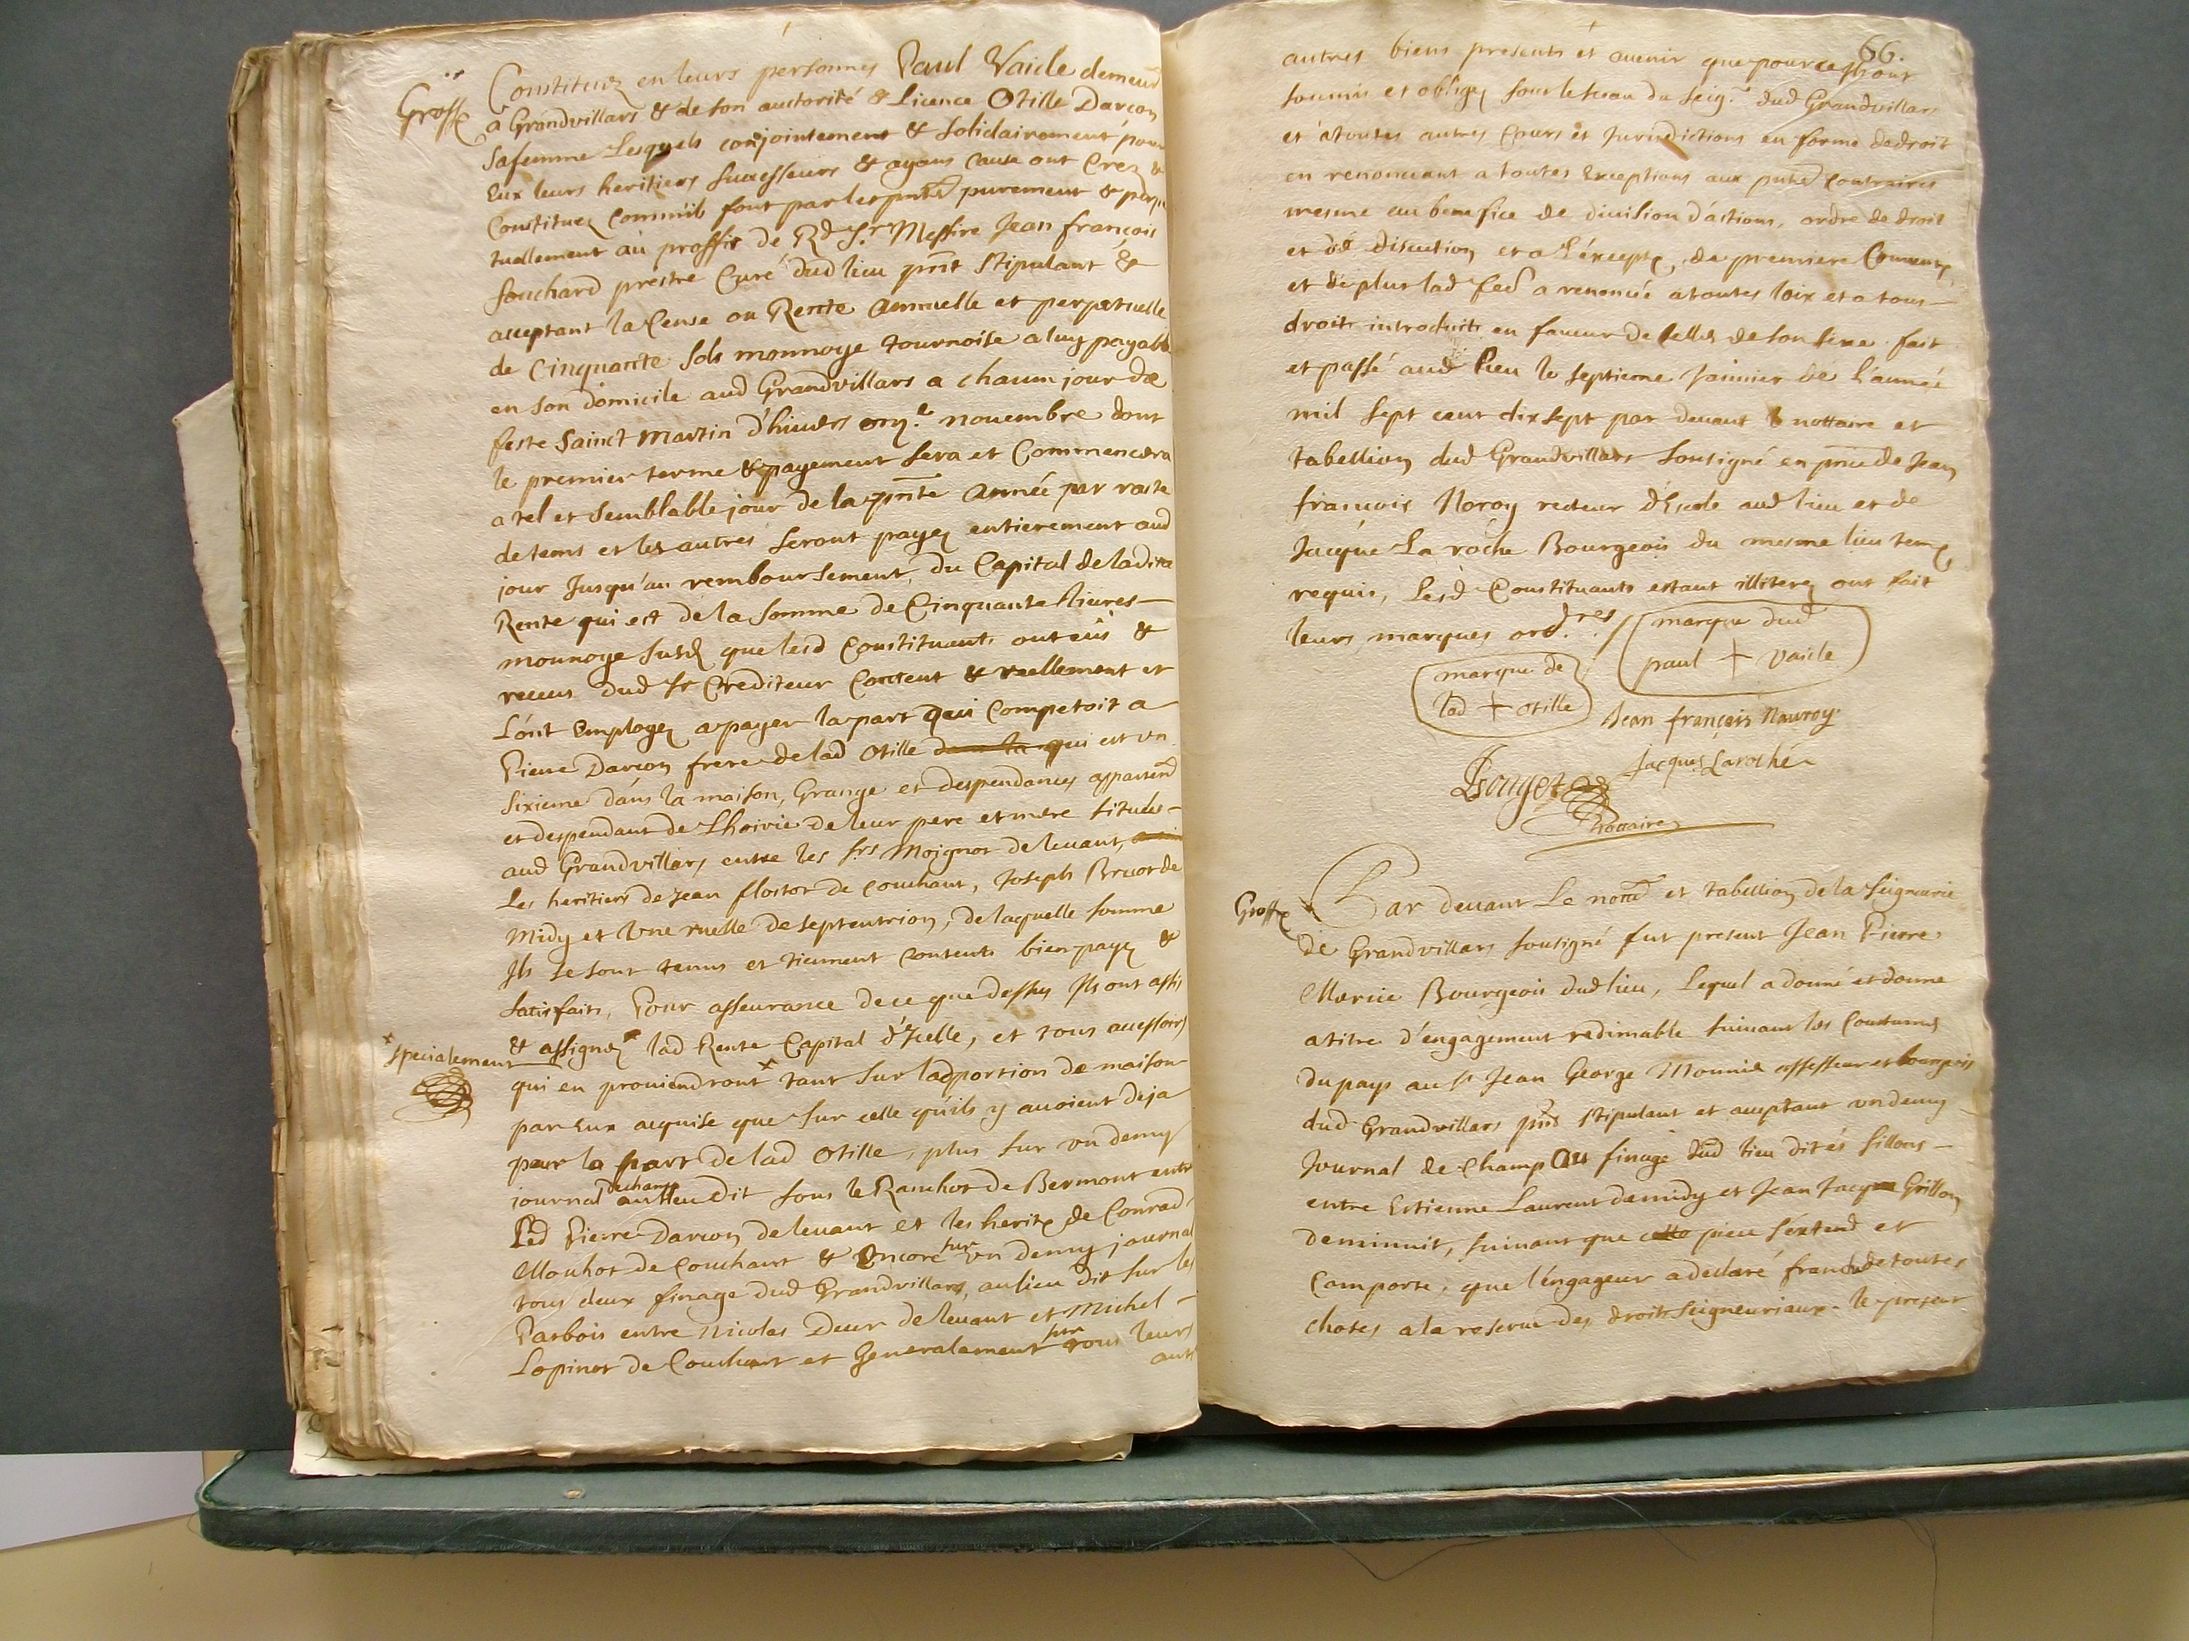 Grosse
Constituez en leurs personnes Paul Vaicle demeurt
a Grandvillars & de son auctorité & Licence Otille Darcon
sa femme Lesquels conjointement & solidairement pour
Eux leurs heritiers successeurs & ayans cause ont Crez &
Constituez comm'ils font par les pntes purement & perpe
tuellement au proffit de Rd Sr Messire Jean françois
souchard prestre Curé dud lieu pnt stipulant &
acceptant la Cense ou Rente annuelle et perpetuelle
de Cinquante sols monnoye tournoise a luy payable
en son domicile aud Grandvillars a chacun jour de
feste Sainct Martin d'hiuers onze novembre dont
le premier terme & payement sera et Commencera
a tel et semblable jour de la pnte année par raste
de tems et les autres seront payez entierement aud
jour Jusqu'au remboursement du Capital de ladite
Rente qui est de la somme de Cinquante Liures
monnoye susd que lesd Constituants ont eüs &
receus dud Sr Crediteur Content & reellement et
L'ont Employez a payer la part qui Competoit a
Pierre Darcon frere de lad Otille dans la qui est un
sixieme dans la maison, Grange et despendances appartend
et despendant de Lhoirie de leur pere et mere situés
aud Grandvillars entre les srs Moignot de leuant,
Les heritiers de Jean flostor de Couchant, Joseph Bruot de
Midy et Vne ruelle de septentrion, de laquelle somme
Ils se sont tenus et tiennent contents bien payez &
satisfaits, Pour asseurance de ce que dessus Ils ont assis
& assignez lad Rente Capital d'Icelle, et tous accessoirs
x specialement
qui en prouiendront x tant sur lad portion de maison
par Eux acquise que sur celle qu'ils y auoient deja
pour la part de lad Otille, plus sur un demy
journal de champ au lieu dit sous le Ranchot de Bermont entre
Led Pierre Darcon de leuant et les herits de Conrad
Mouhot de Couchant & Encore sur un demy journal
tous deux finage dud Grandvillars, au lieu dit sur les
Parbois entre Nicolas Deur de leuant et Michel
Lopinot de Couchant et Generalement sur tous leurs
autr
66.
autres biens presents et auenir que pour ce ils ont
soumis et obligez sous le sceau du Seigr dud Grandvillars
et a toutes autres Cours et Jurisdictions en forme de droit
en renonceant a toutes Exceptions aux pntes Contraires
mesme au benefice de diuision d'actions, ordre de droit
et de discution et a L'excepte, de premiere Conuent
et de plus lad fed a renoncée a toutes loix et a tous
droits introduits en faueur de celles de son sexe. fait
et passé aud lieu le septieme Januier de l'année
mil sept cent dix sept par deuant le nottaire et
tabellion dud Grandvillars sousigné en pnce de Jean
francois Noroy recteur d'Escole aud lieu et de
Jacque La roche Bourgeois du mesme lieu tems
requis, Lesd Constituants estant illiterez ont fait
leurs marques ordres /
marque dud
paul + Vaicle
marque de
lad + otille
Jean françois Nauroy
Jacques Laroche
notaire
Grosse
Par deuant Le nottre et tabellion de la Seigneurie
de Grandvillars sousigné fut present Jean Pierre
Bourgeois dud lieu, Lequel a donné et donne
a titre d'engagement redimable suiuant les Coustumes
du pays au Sr Jean George Monnié assesseur et bourgeois
dud Grandvillars pnt stipulant et acceptant un demy
Journal de Champ au finage dud lieu dit és sillons
entre Estienne Laurent de midy et Jean Jacque Grillon
de minuit, suiuant que cette piece s'extend et
Comporte, que l'engageur a declaré franche de toutes
choses a la reserue des droits seigneuriaux. le present